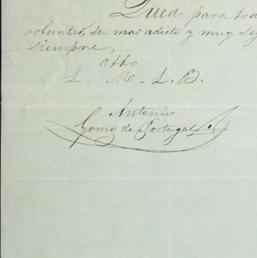 Quedo para tod
voluntad, su mas adicto y muy seg
siempre,
atto
L. M. L. B.
Antonio
Gomez de Portugal